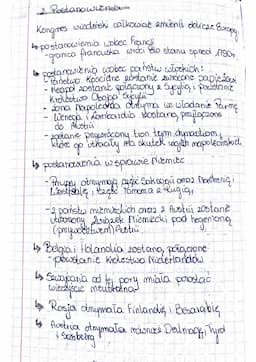 2. Postanowienia
Kongres wiedeński całkowicie zmienił oblicze Europy
↳ postanowienia wobec Francji
- granica francuska wróci do stanu sprzed 1790r.
↳ postanowienia wobec państw włoskich:
- Państwo Kościelne zostanie zwrócone papieżowi
- Neapol zostanie połączony z Sycylią i powstanie
Królestwo Obojga Sycylii
- żona Napoleona otrzyma we władanie Parmę
- Wenecja i Lombardia zostaną przyłączone
do Austrii
- zostanie przywrócony tron tym dynastiom,
które go utraciły na skutek wojen napoleońskich
↳ postanowienia w sprawie Niemiec
- Prusy otrzymają część Saksonii oraz Nadrenię i
Westfalię, część Pomorza z Rugią,
- z państw niemieckich oraz z Austrii zostanie
utworzony Związek Niemiecki pod hegemonią
(przywództwem) Austrii
↳ Belgia i Holandia zostaną połączone
- powstanie Królestwo Niderlandów
↳ Szwajcaria od tej pory miała pozostać
wieczyście neutralna
↳ Rosja otrzymała Finlandię i Besarabię
↳ Austria otrzymała również Dalmację, Tyrol
i Salzburg